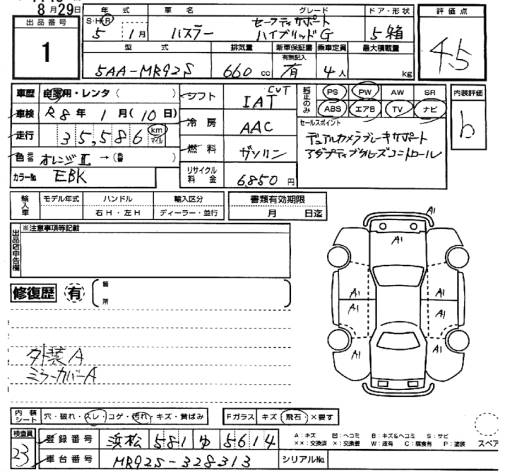 8月29日
出品番号
1
年式
S・H・R
5年1月
車名
ハスラー
グレード
セーフティサポート
ハイブリッドG
ドア・形状
5箱
型式
5AA-MR92S
排気量
660cc
新車保証書
有無記入
有
乗車定員
4人
最大積載量
kg
評価点
4.5
内装評価
b
車歴
自家用・レンタ( )
車検
R8年1月(10日)
走行
35,586
km
マイル
色
オレンジⅡ→( )
カラーNo.
EBK
シフト
CVT
IAT
冷房
AAC
燃料
ガソリン
リサイクル
料金
6850円
純正のみ
PS PW AW SR
ABS エアB TV ナビ
セールスポイント
デュアルカメラブレーキサポート
アダプティブクルーズコントロール
輸入車
モデル年式
ハンドル
右H・左H
輸入区分
ディーラー・並行
書類有効期限
月 日迄
出品店申告欄
※注意事項等記載
修復歴
有
箇所
外装A
ミラーカバーA
A1
A1
A1
A1
A1
A1
内装
シート
穴・破れ・スレ・コゲ・汚れ・キズ・黄ばみ
Fガラス
キズ
飛石
×要す
検査員
23
登録番号
浜松 581 ゆ 5614
車台番号
MR92S-328313
シリアルNo.
A:キズ U:ヘコミ B:キズ&ヘコミ S:サビ
××:交換済 ×:要交換 W:波有 C:腐食有 P:塗装
スペア